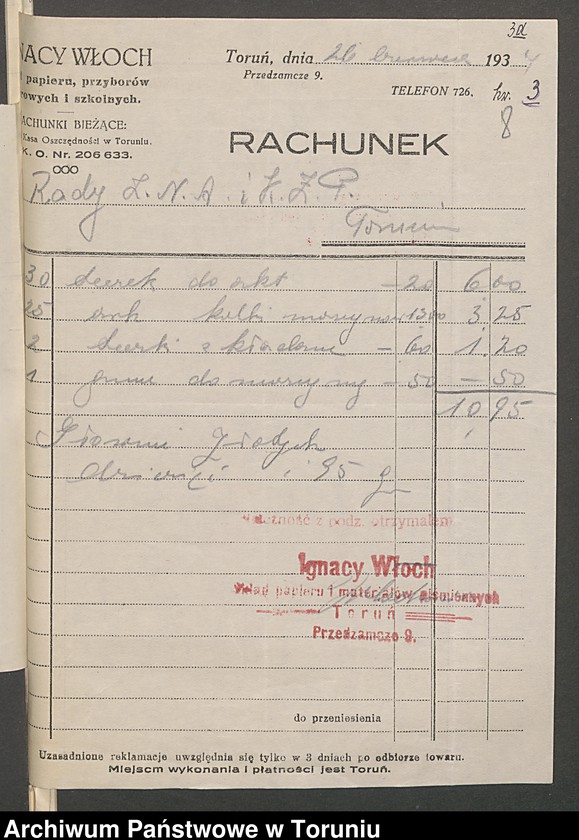 3a
NACY WŁOCH
papieru, przyborów
rowych i szkolnych.
ACHUNKI BIEŻĄCE:
Kasa Oszczędności w Toruniu.
K. O. Nr. 206 633.
Toruń, dnia 26 czerwca 1934
Przedzamcze 9.
TELEFON 726.
3
8
RACHUNEK
Rady Z. N. A. i K. Z. P.
Toruniu
30 teczek do akt — 20 6 00
25 ark 13 3 25
2 teczki — 60 1 20
1 do — 50 — 50
10,95
Słownie złotych
dziesięć i 95 gr
Należność z podz. otrzymałem
Ignacy Włoch
Skład papieru i materjałów piśmiennych
Toruń
Przedzamcze 9.
do przeniesienia
Uzasadnione reklamacje uwzględnia się tylko w 3 dniach po odbiorze towaru.
Miejscm wykonania i płatności jest Toruń.
Archiwum Państwowe w Toruniu